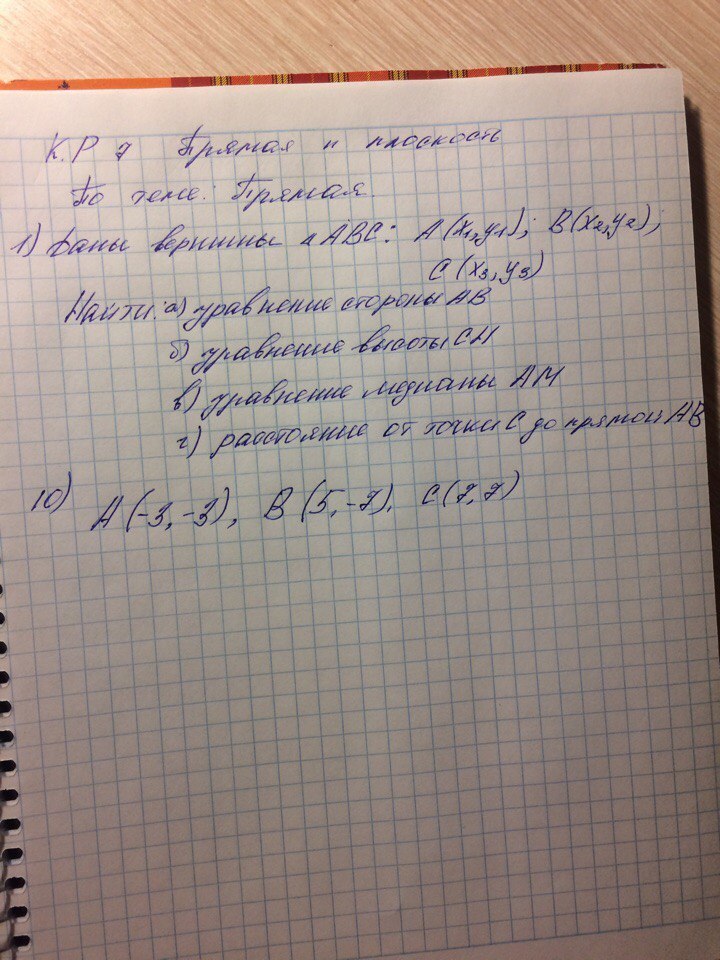 К.Р 7 Прямая и плоскость
По теме: Прямая.
1) Даны вершины △ABC: A(x₁,y₁); B(x₂,y₂);
C(x₃,y₃)
Найти: а) уравнение стороны AB
б) уравнение высоты CH
в) уравнение медианы AM
г) расстояние от точки C до прямой AB
10) A(-3,-3), B(5,-7), C(7,7)